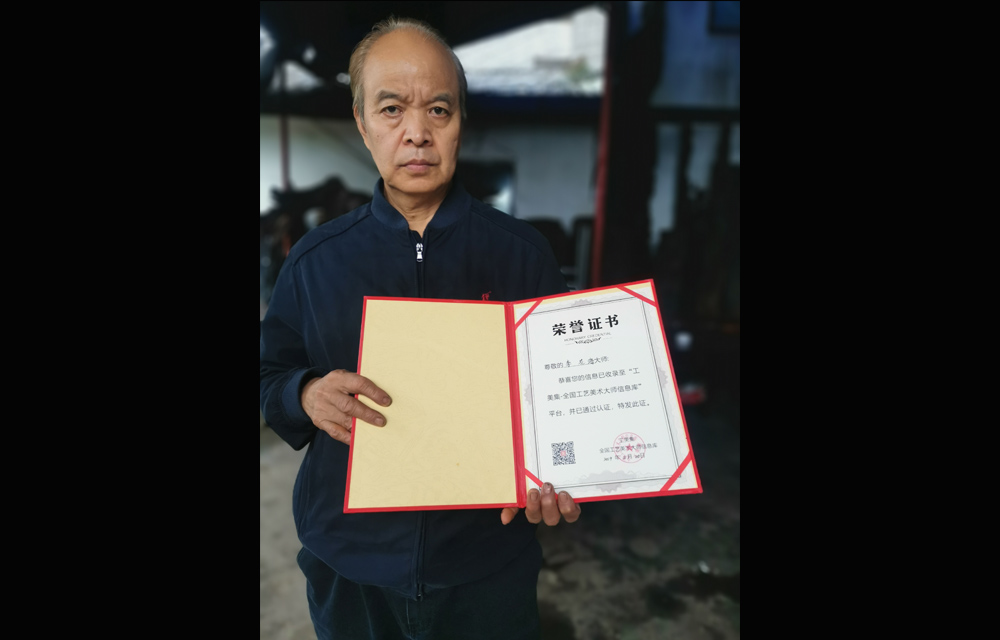 荣誉证书
HONORARY CREDENTIAL
尊敬的 大师:
恭喜您的信息已收录至“工
美集-全国工艺美术大师信息库”
平台，并已通过认证，特发此证。
工艺美集
全国工艺美术大师信息库